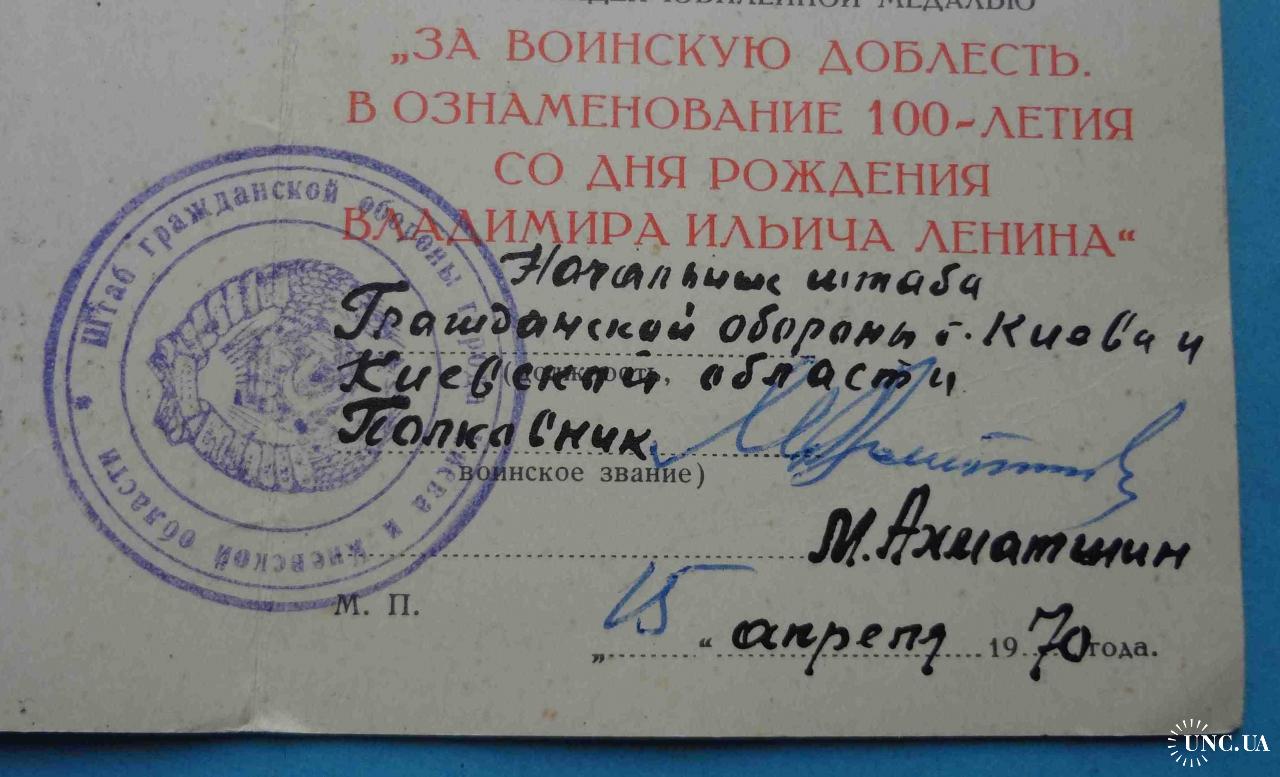 ЮБИЛЕЙНОЙ МЕДАЛЬЮ
„ЗА ВОИНСКУЮ ДОБЛЕСТЬ.
В ОЗНАМЕНОВАНИЕ 100-ЛЕТИЯ
СО ДНЯ РОЖДЕНИЯ
ВЛАДИМИРА ИЛЬИЧА ЛЕНИНА“
Начальник штаба
Гражданской обороны г. Киева и
Киевской области
Полковник
воинское звание)
М. Ахматшин
М. П.
„15“ апреля 1970 года.
Штаб гражданской обороны города Киева и Киевской области
UNC.UA